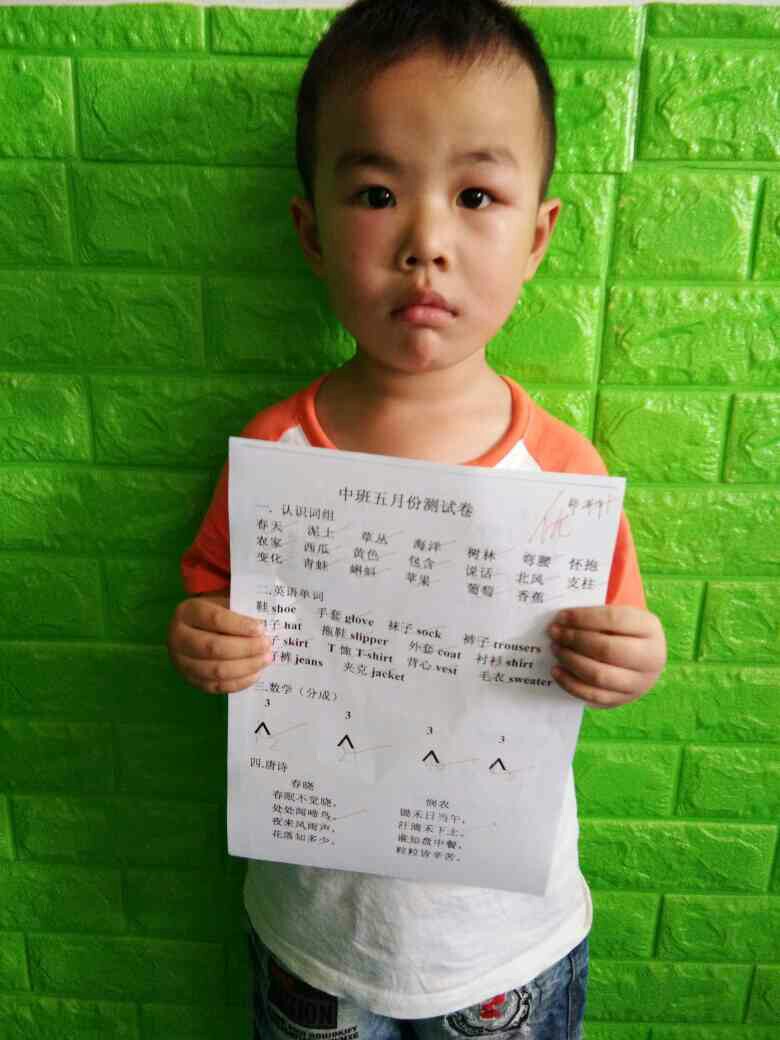 中班五月份测试卷
优
一. 认识词组
春天 泥土 草丛 海洋 树林 弯腰 怀抱
农家 西瓜 黄色 包含 说话 北风 支柱
变化 青蛙 蝌蚪 苹果 葡萄 香蕉
二.英语单词
鞋 shoe 手套 glove 袜子 sock 裤子 trousers
子 hat 拖鞋 slipper 外套 coat 衬衫 shirt
子 skirt T 恤 T-shirt 背心 vest 毛衣 sweater
裤 jeans 夹克 jacket
三.数学（分成）
3 3 3 3
四.唐诗
春晓
春眠不觉晓，
处处闻啼鸟，
夜来风雨声，
花落知多少。
悯农
锄禾日当午，
汗滴禾下土，
谁知盘中餐，
粒粒皆辛苦。